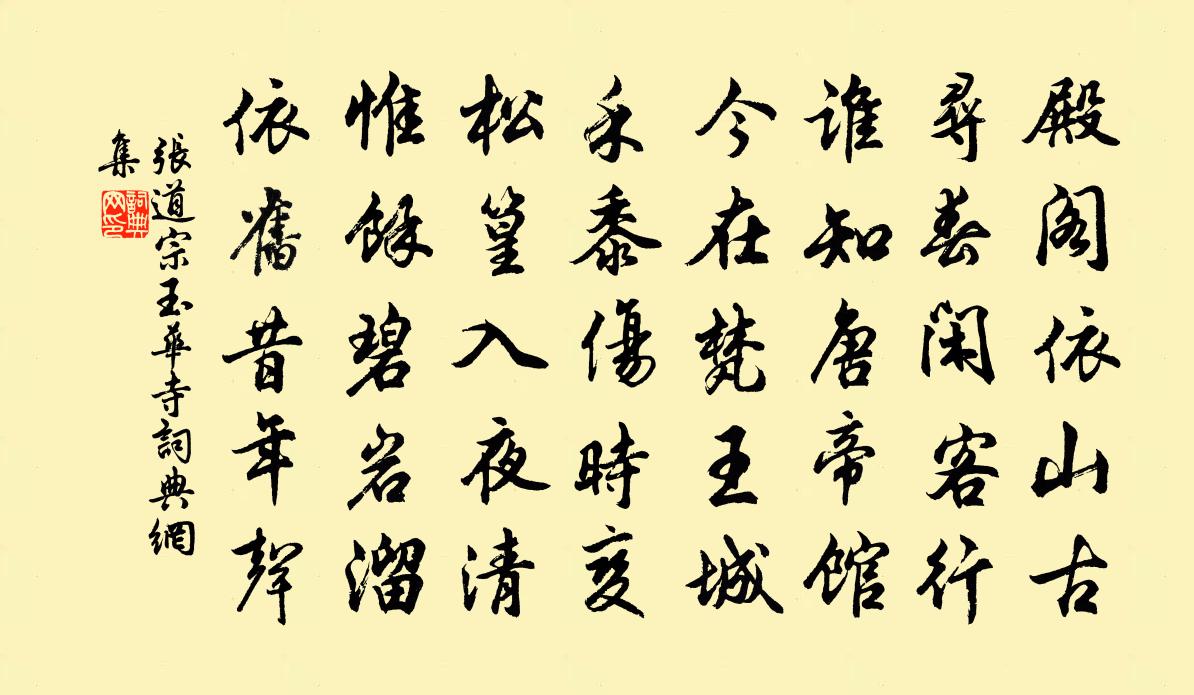 殿閣依山古
尋春閑客行
誰知唐帝館
今在梵王城
禾黍傷時變
松篁入夜清
惟餘碧岩溜
依舊昔年聲
張道宗玉華寺詞典網
集
詞典网印